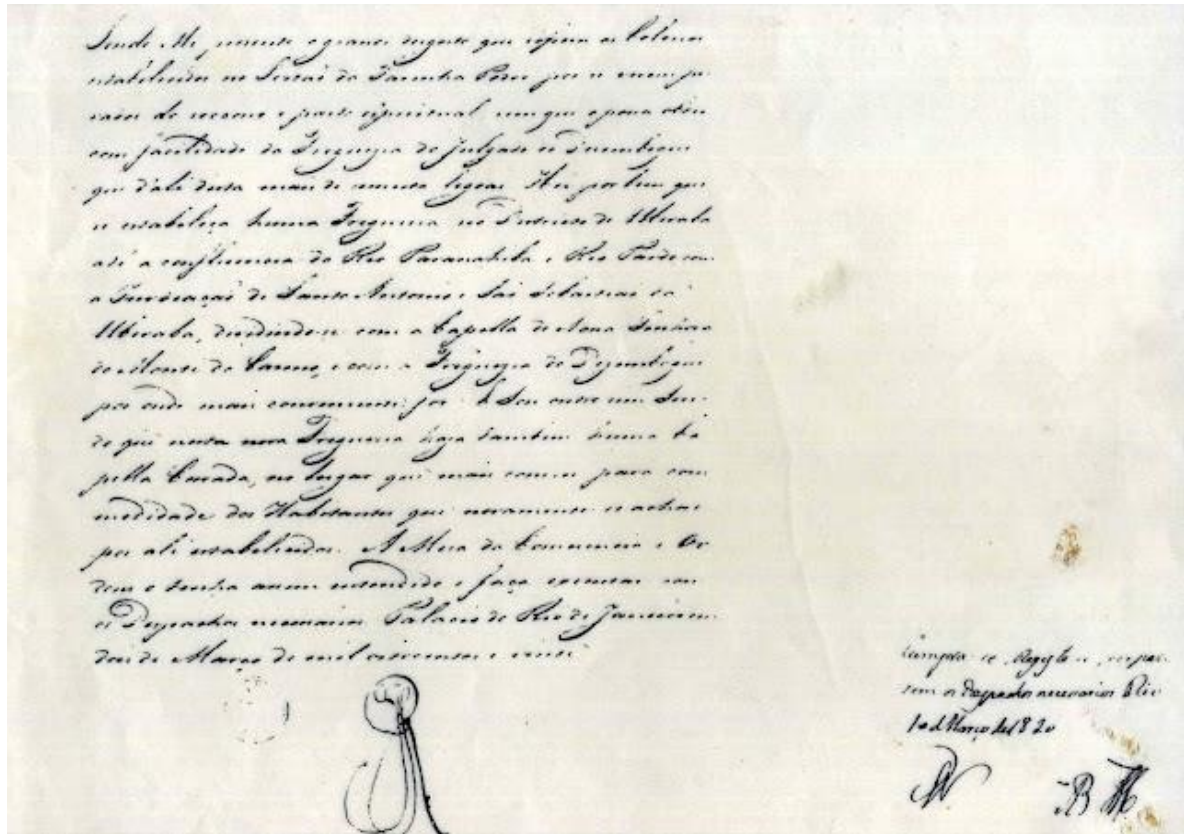 Sendo Me presente o grande que os Colonos
estabelecidos no Sertão da Farinha Podre por se
de e pasto espiritual, com que
com facilidade da Freguezia do Julgado do Dezemboque
que d'ali dista mais de legoas. Hei por bem que
se estabeleça huma Freguezia no Districto de Uberaba
até a confluencia do Rio Paranahiba e Rio Pardo com
a Invocação de Santo Antonio e São Sebastião do
Uberaba, dividindo-se com a Capella de Nossa Senhora
do Monte do Carmo, e com a Freguezia do Dezemboque
por onde mais conveniente for. E Sou outro sim Ser-
do que nesta nova Freguezia haja tambem huma Ca
pella Curada, no lugar que mais convier para com
modidade dos Habitantes que novamente se achão
por ali estabelecidos. A Meza da Consciencia e Or
dens o tenha assim entendido e faça executar com
os Despachos necessarios. Palacio do Rio de Janeiro em
dois de Março de mil oitocentos e vinte
Cumpra-se, Registe-se,
os Despachos necessarios Rio
de Março de 1820